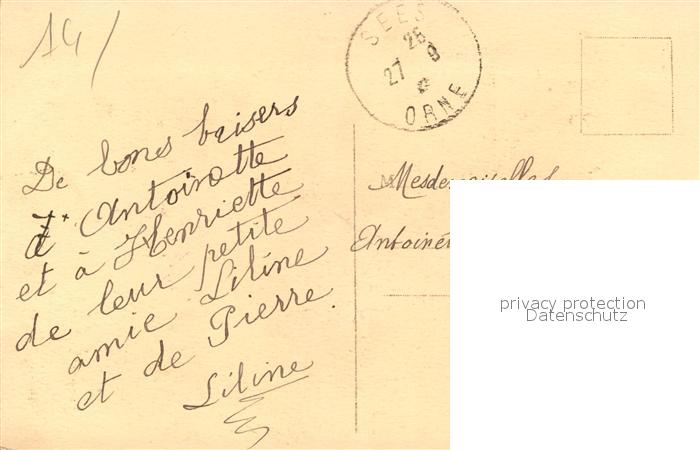 14/
SEES
26
27 9
ORNE
De bons baisers
à Antoinette
et à Henriette
de leur petite
amie Liline
et de Pierre.
Liline
Mesdemoiselles
privacy protection
Datenschutz